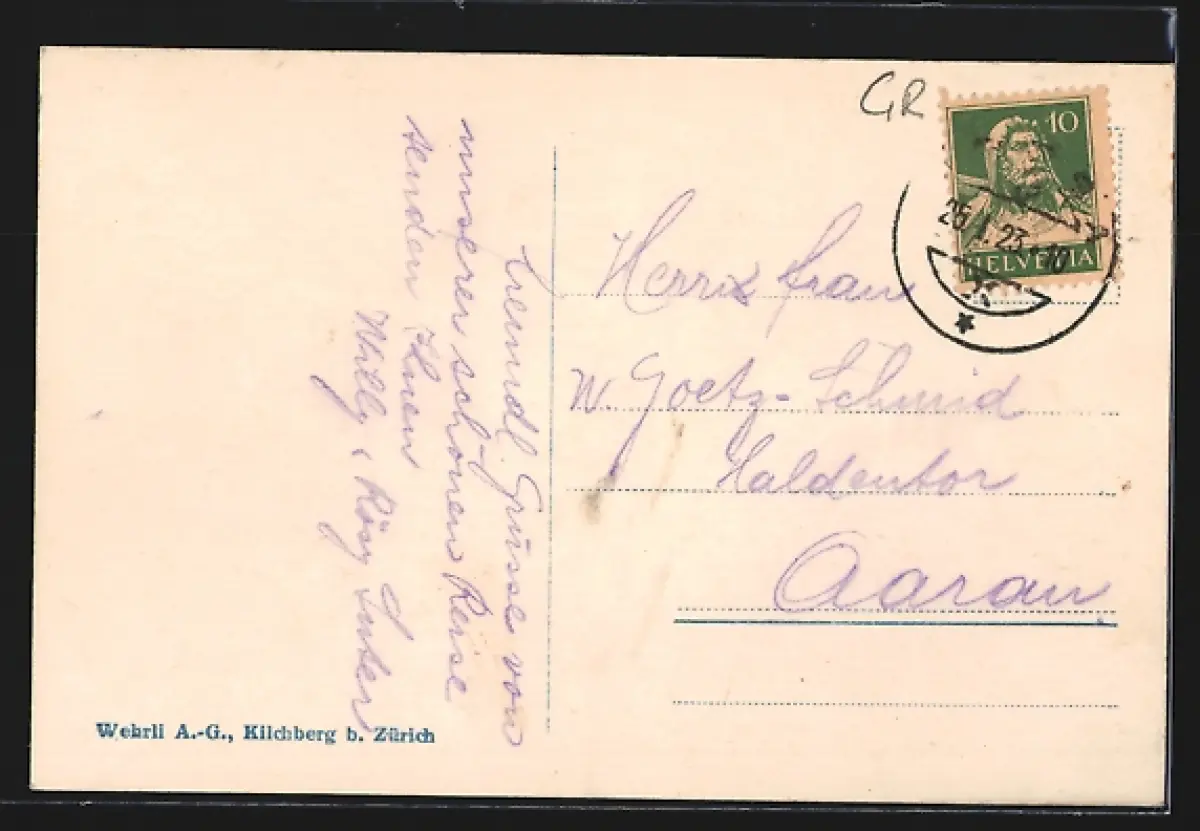 GR
10
HELVETIA
25.I.23.-10
Freundl. Grüsse von
unserer schönen Reise
senden Ihnen
Willy & Rösy Suter
Herrn Frau
W. Goetz-Schmid
Haldentor
Aarau
Wehrli A.-G., Kilchberg b. Zürich